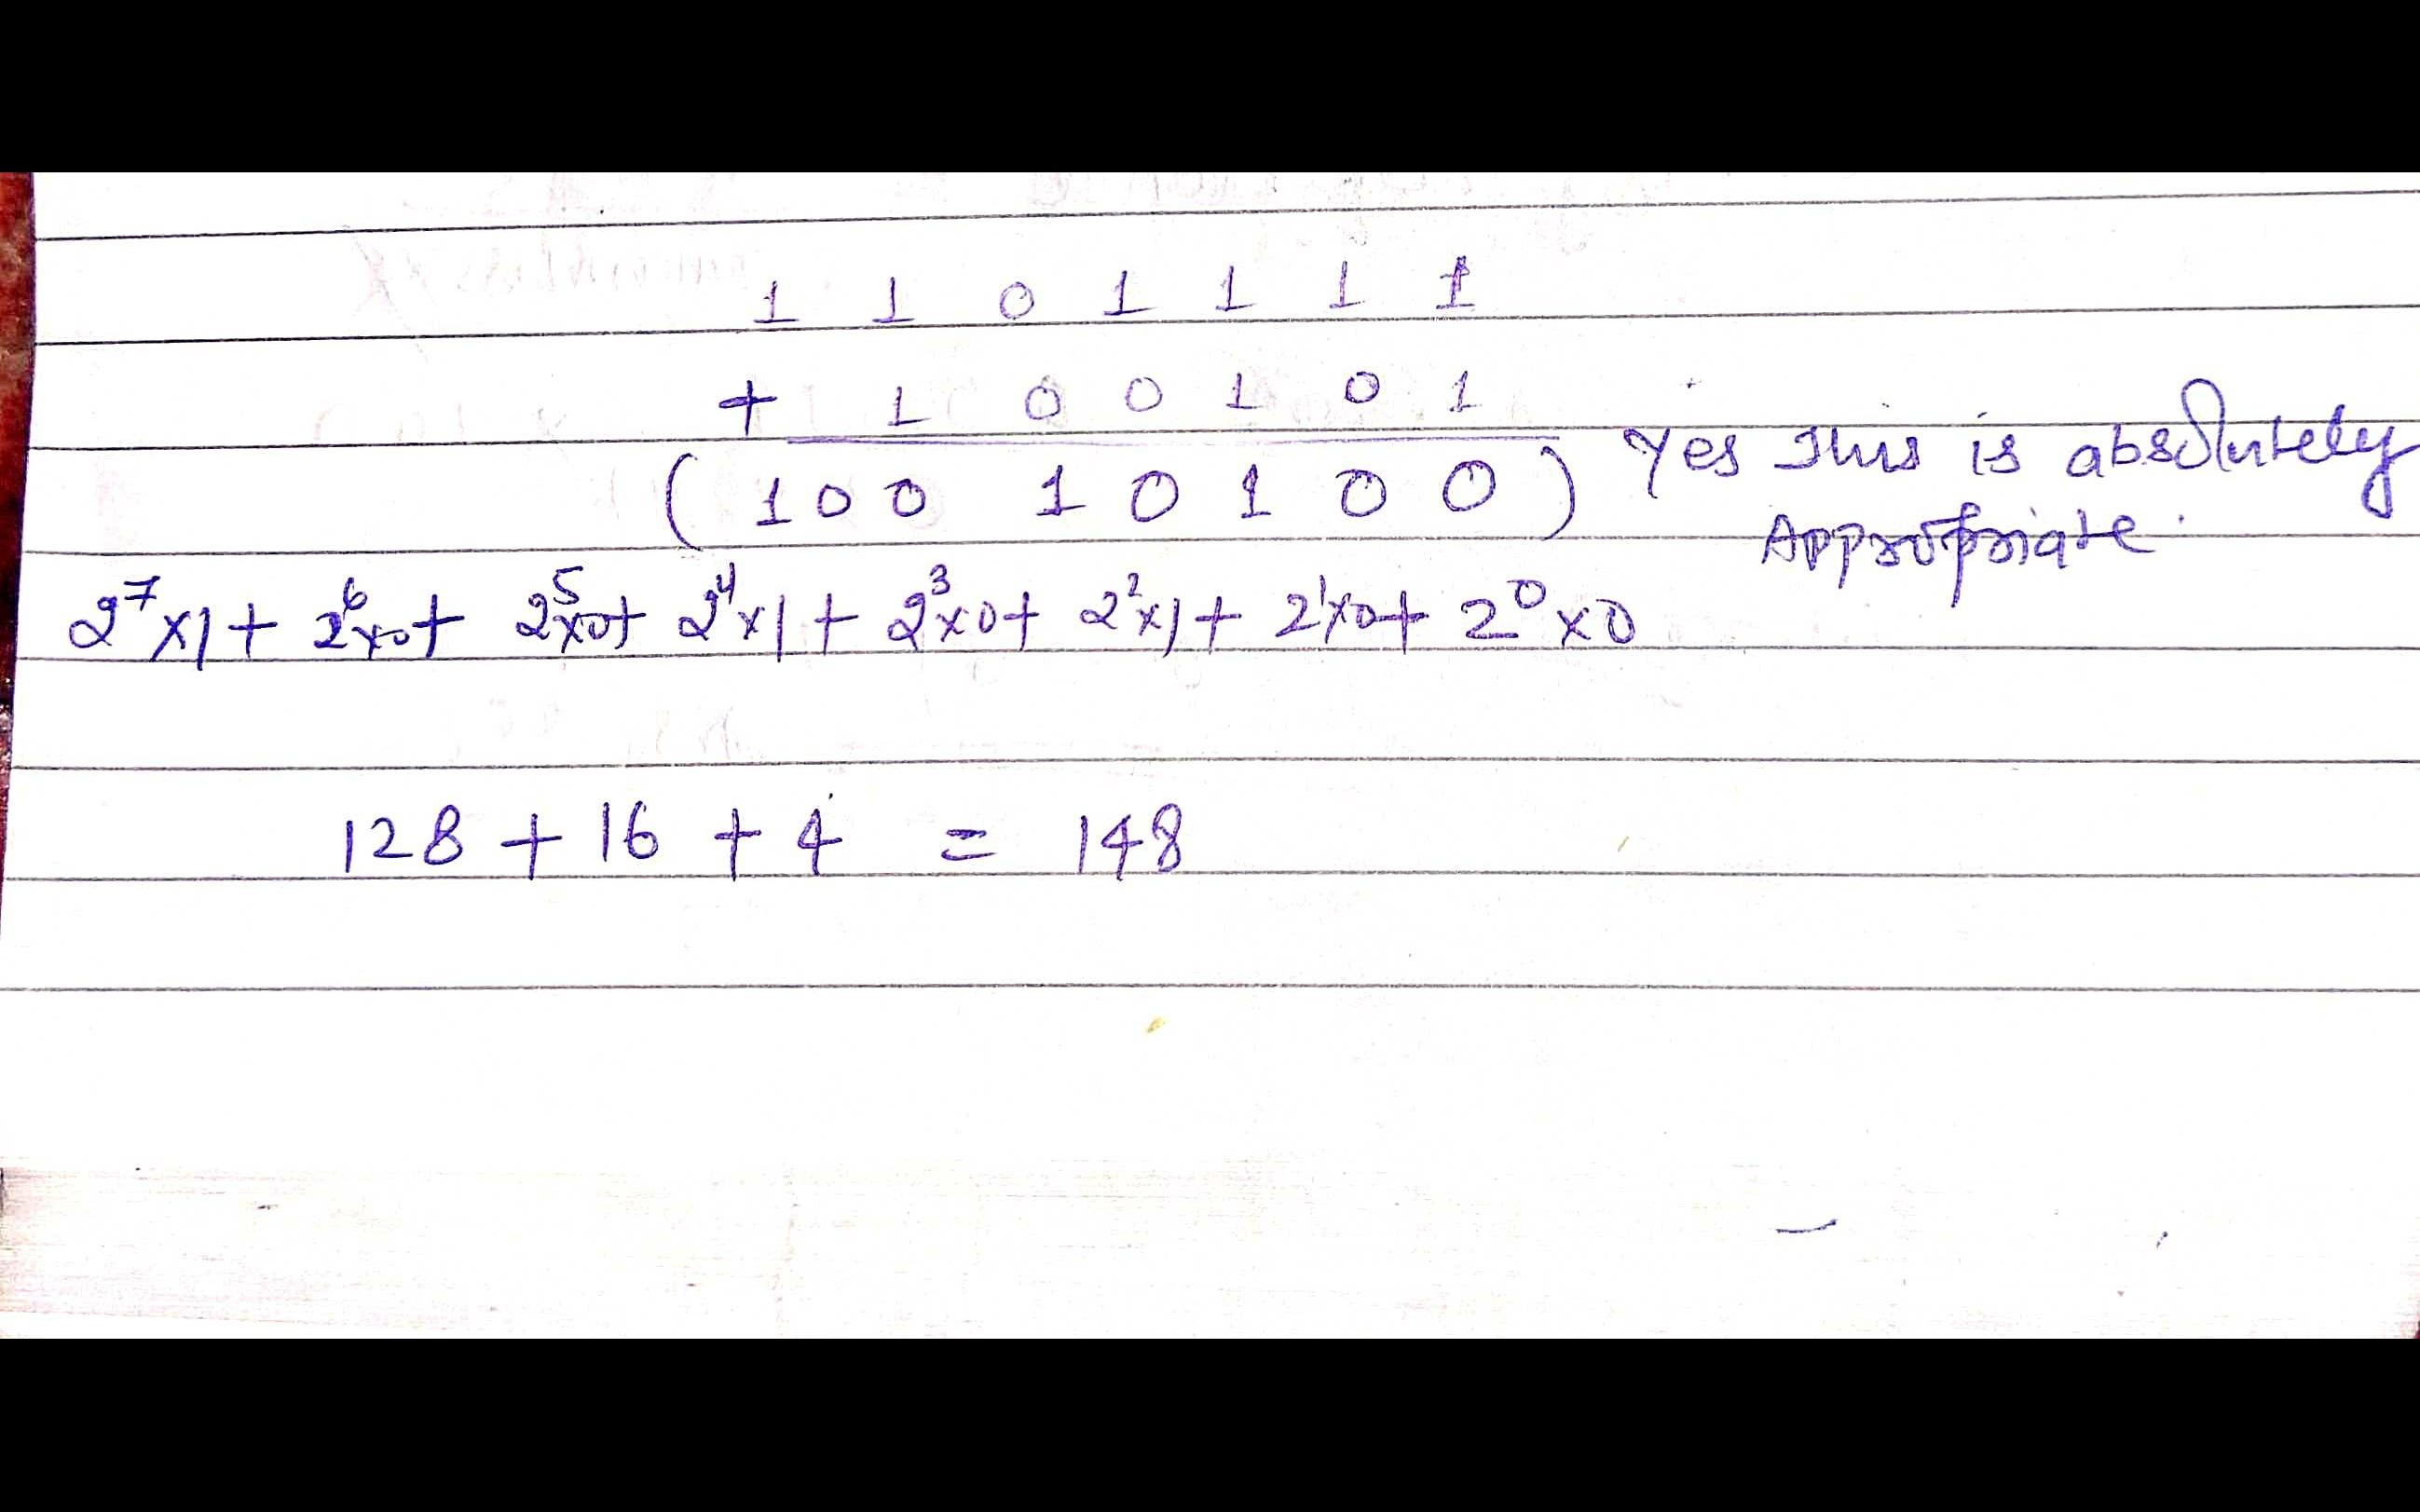 1 1 0 1 1 1 1
+ 1 0 0 1 0 1
( 1 0 0 1 0 1 0 0 ) Yes This is absolutely
Appropriate.
2⁷x1 + 2⁶x0 + 2⁵x0 + 2⁴x1 + 2³x0 + 2²x1 + 2¹x0 + 2⁰x0
128 + 16 + 4 = 148